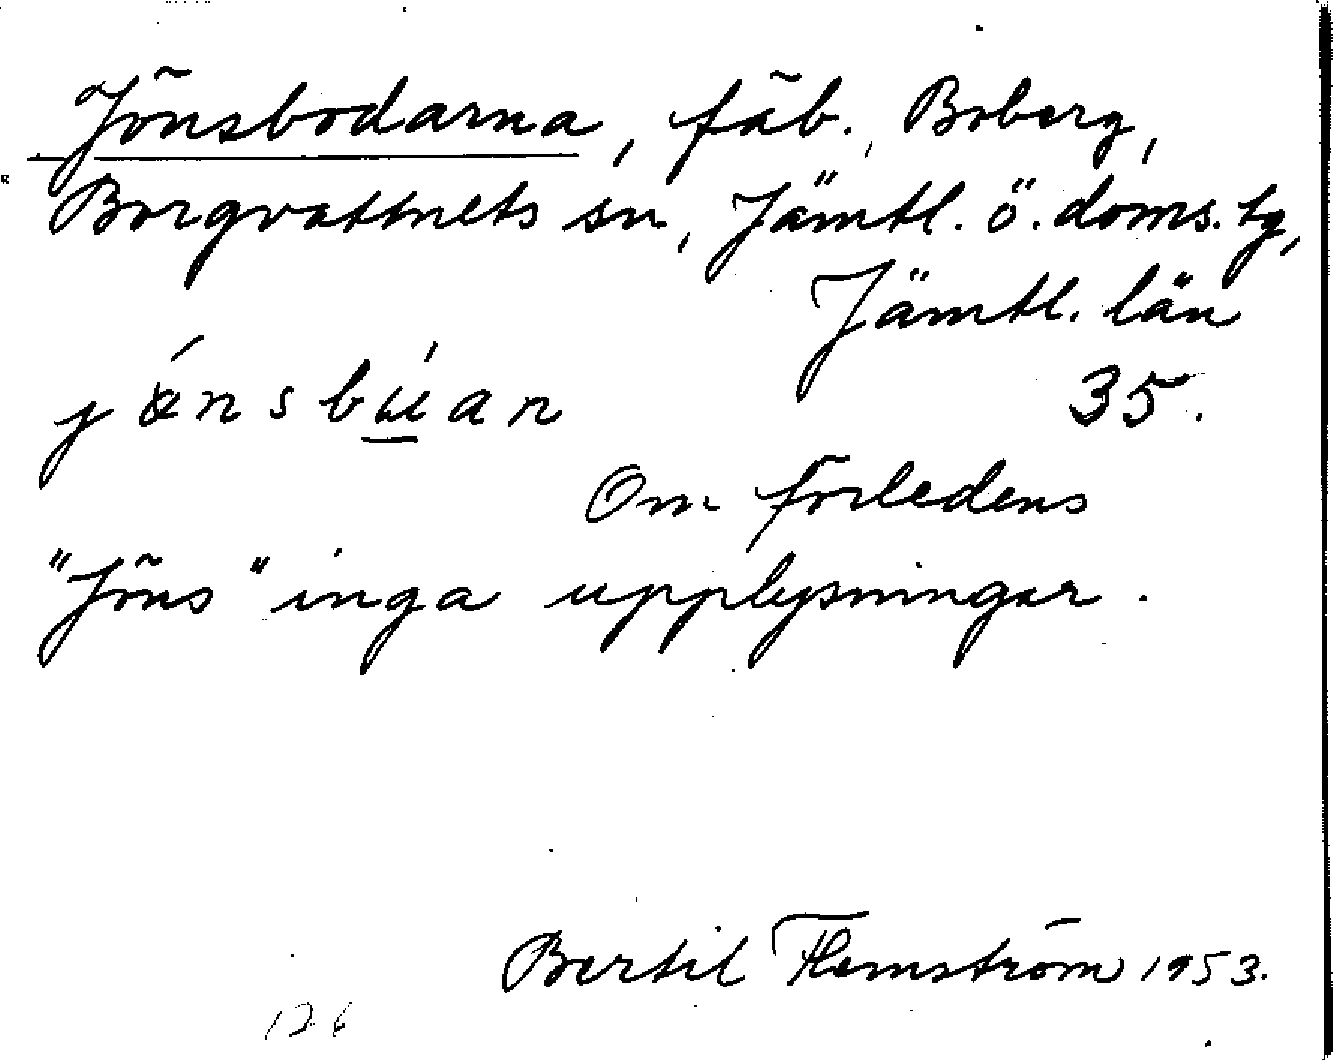 Jönsbodarna, fäb., Boberg,
Borgvattnets sn, Jämtl. ö. doms. tg,
Jämtl. län
jönsbúan 35.
Om förledens
"Jöns" inga upplysningar.
Bertil Flemström 1953.
126